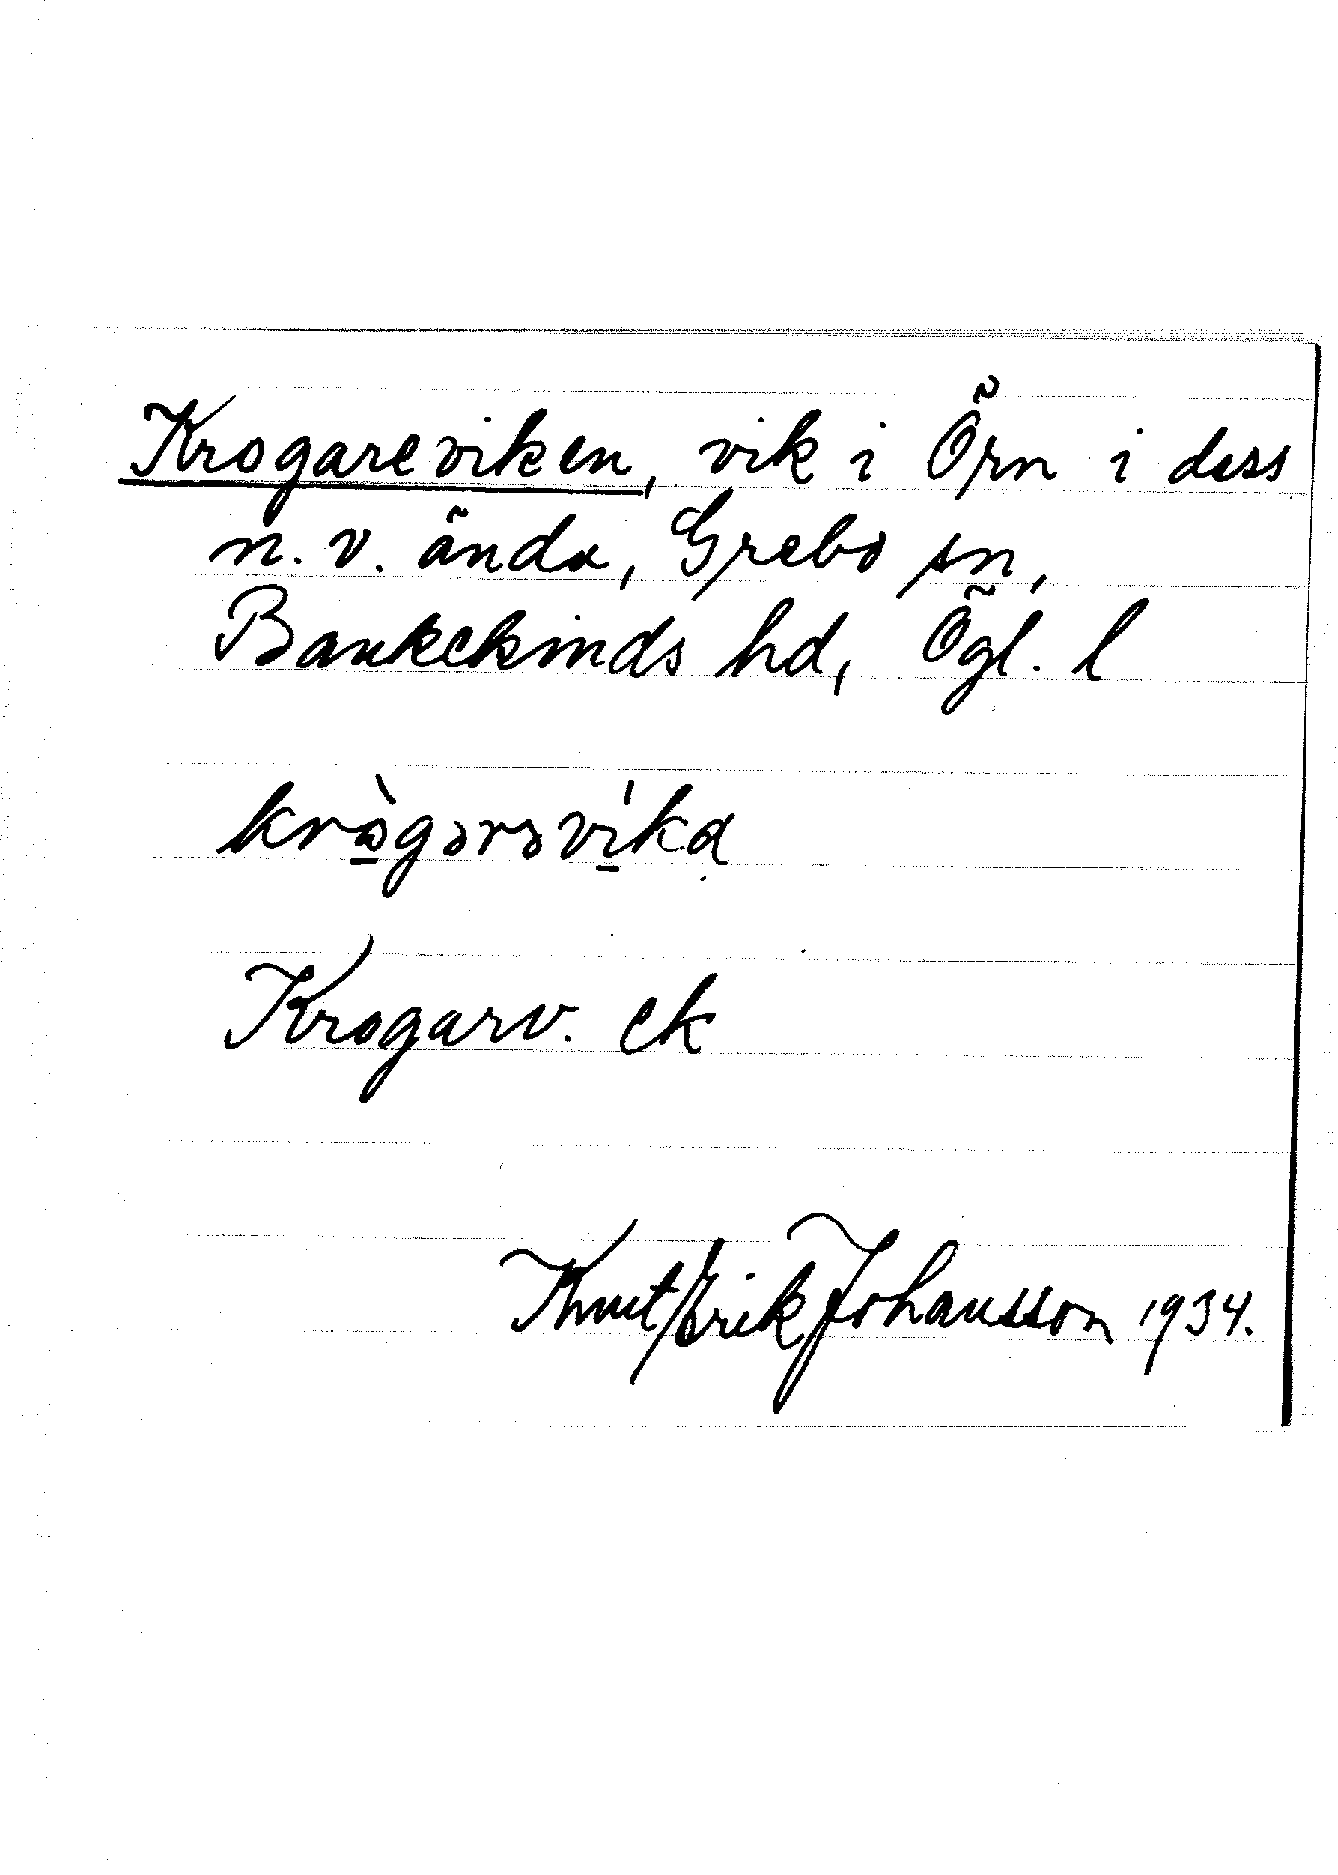 Krogareviken, vik i Örn i dess
n.v. ända, Grebo sn,
Bankekinds hd, Ögl. l
krògərəvíka
Krogarv. ek
Knut/Erik Johansson 1934.